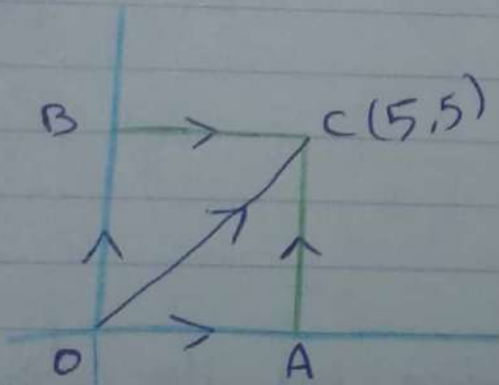 B
C (5,5)
O
A